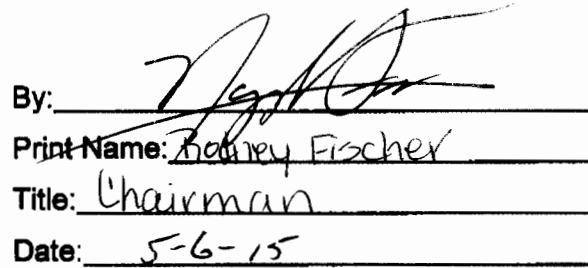 By:
Print Name: Rodney Fischer
Title: Chairman
Date: 5-6-15